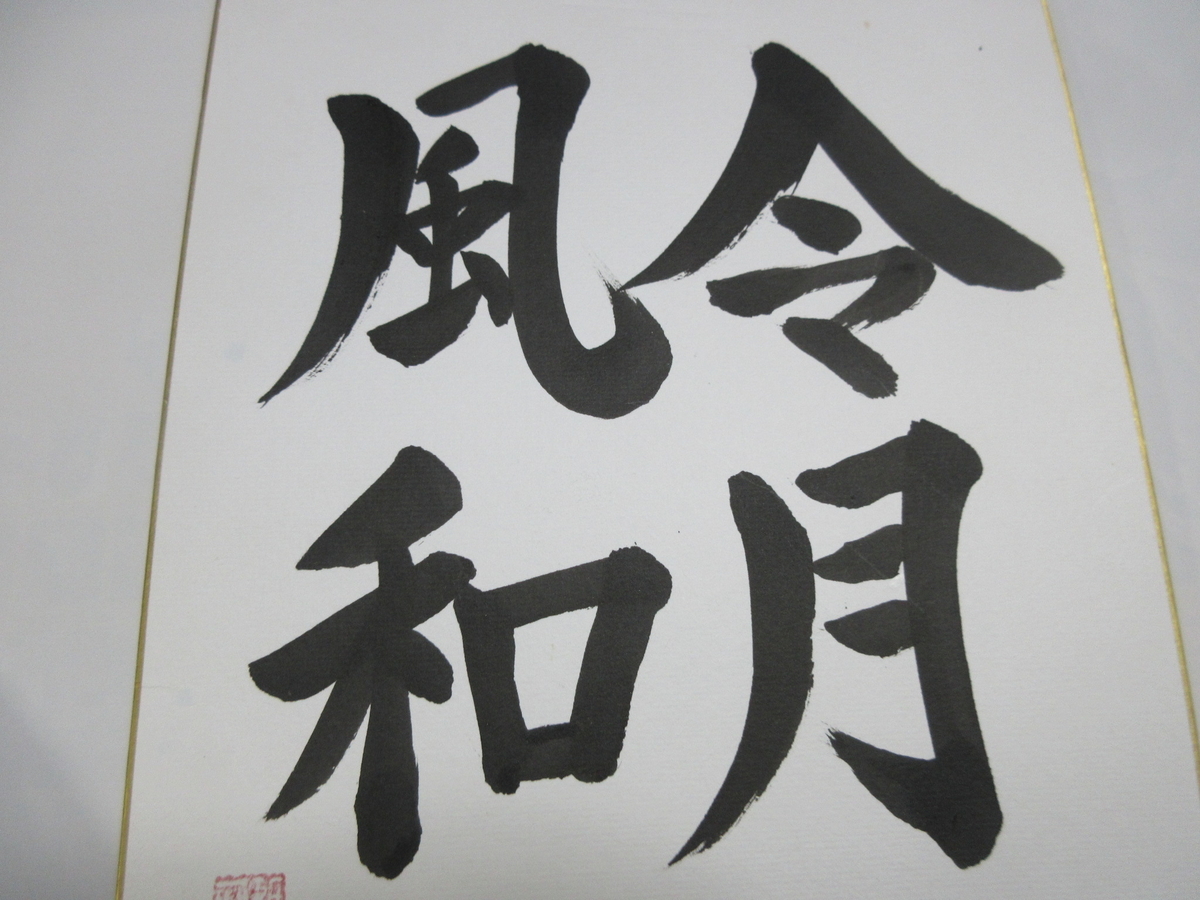 令月
風和